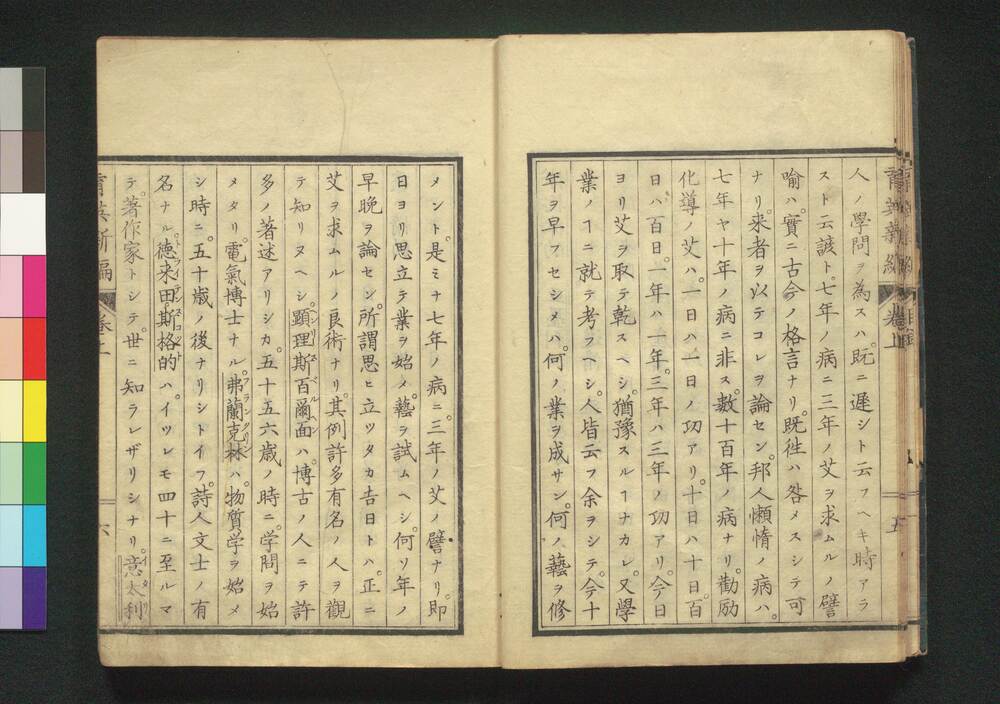 人ノ學問ヲ為スハ。既ニ遲シト云フヘキ時アラ
スト云諺ト。七年ノ病ニ三年ノ艾ヲ求ムルノ譬
喻ハ。實ニ古今ノ格言ナリ。既徃ハ咎メスシテ可
ナリ。来者ヲ以テコレヲ論セン。邦人懶惰ノ病ハ。
七年ヤ十年ノ病ニ非ス。數十百年ノ病ナリ。勸励
化導ノ艾ハ。一日ハ一日ノ功アリ。十日ハ十日。百
日ハ百日。一年ハ一年。三年ハ三年ノ功アリ。今日
ヨリ艾ヲ取テ乾スヘシ。猶豫スルヿナカレ。又學
業ノヿニ就テ考フヘシ。人皆云フ余ヲシテ。今十
年ヲ早フセシメハ。何ノ業ヲ成サン。何ノ藝ヲ修
五
メント。是ミナ七年ノ病ニ。三年ノ艾ノ譬ナリ。即
日ヨリ思立テ業ヲ始メ。藝ヲ試ムヘシ。何ソ年ノ
早晩ヲ論セン。所謂思ヒ立ツタカ吉日トハ。正ニ
艾ヲ求ムルノ良術ナリ。其例許多有名ノ人ヲ觀
テ知リヌヘシ。顕理斯百爾面ハ。博古ノ人ニテ許
多ノ著述アリシカ。五十五六歳ノ時ニ。学問ヲ始
メタリ。電氣博士ナル。弗蘭克林ハ。物質学ヲ始メ
シ時ニ。五十歳ノ後ナリシトイフ。詩人文士ノ有
名ナル。徳来田。斯格的ハ。イツレモ四十ニ至ルマ
テ。著作家トシテ。世ニ知ラレザリシナリ。意太利
六